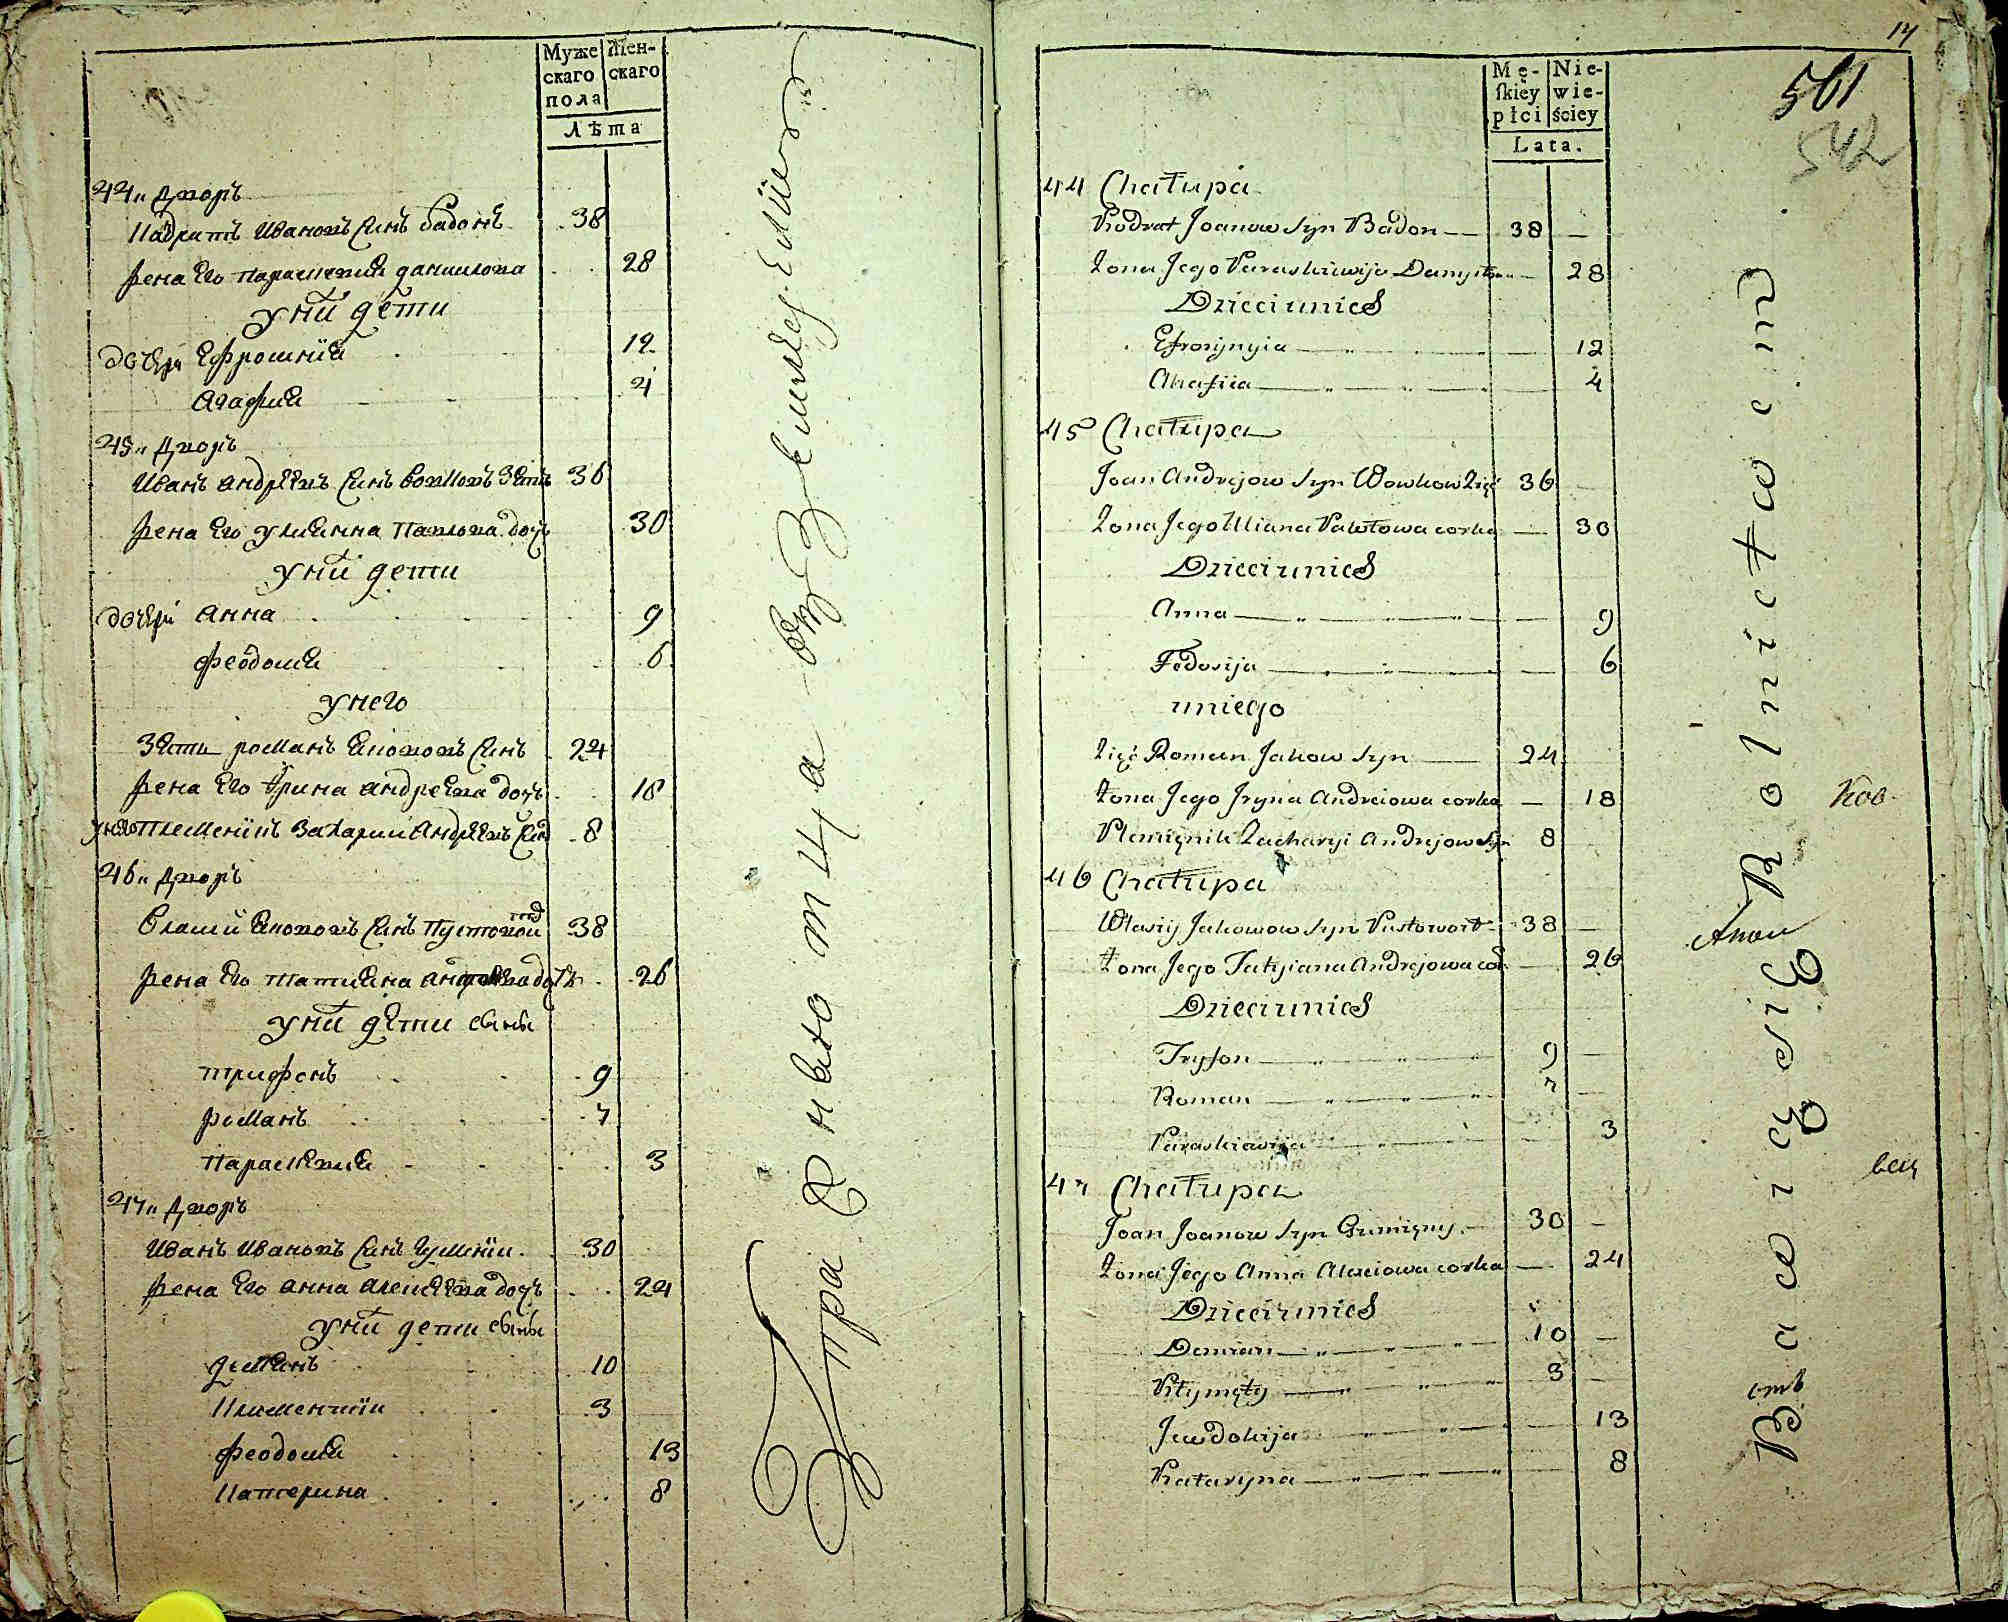 Муже Жен-
скаго скаго
пола
Лѣта
44 Дворъ
Кадратъ Ивановъ синъ бадонъ 38
жена Его параскевия данилова 28
у ни дети
дочери Ефросинїя 12
Агафия 4
45 Дворъ
Иванъ андреевъ синъ вовковъ зять 36
жена Его улиянна павлова дочь 30
у ни дети
дочери анна 9
феодосия 6
у него
зять романъ яковов синъ 24
жена Его Ирина андреева дочь 18
у него племенїкъ захарий андреевъ синъ 8
46 Дворъ
Власий яковов синъ пустовойт 38
жена Его татияна андреева дочь 26
у ни дети сыны
трифонъ 9
романъ 7
параскевия 3
47 Дворъ
Иванъ Ивановъ синъ гуменїй 30
жена Его анна алексеева дочь 24
у ни дети сыны
демянъ 10
климентий 3
феодосия 13
катерина 8
14
561
542
Mę- Nie-
skiey wie-
płci ściey
Lata.
44 Chałupa
Kodrat Joanow syn Badon — 38 —
Zona Jego Paraskiewija Danyło — 28
Dzieci u nich
Efrosynyia — 12
Ahafiia — 4
45 Chałupa
Joan Andrejow syn Wowkow Zięć 36
Zona Jego Uliana Pawłowa corka — 30
Dzieci u nich
Anna — 9
Fedosija — 6
u niego
Zięć Roman Jakow syn — 24
Zona Jego Iryna Andreiowa corka — 18
Plemięnik Zacharyi Andrejow syn 8
46 Chałupa
Własiy Jakowow syn Pustowoit 38 —
Zona Jego Tatyiana Andrejowa cor — 26
Dzieci u nich
Tryfon — 9 —
Roman — 7 —
Paraskiewija — 3
47 Chałupa
Joan Joanow syn Gumięny — 30 —
Zona Jego Anna Alexiowa corka — 24
Dzieci u nich
Demian — 10 —
Kłymęty — 3 —
Jewdokija — 13
Kataryna — 8
Bawiącsię Rolnictwem